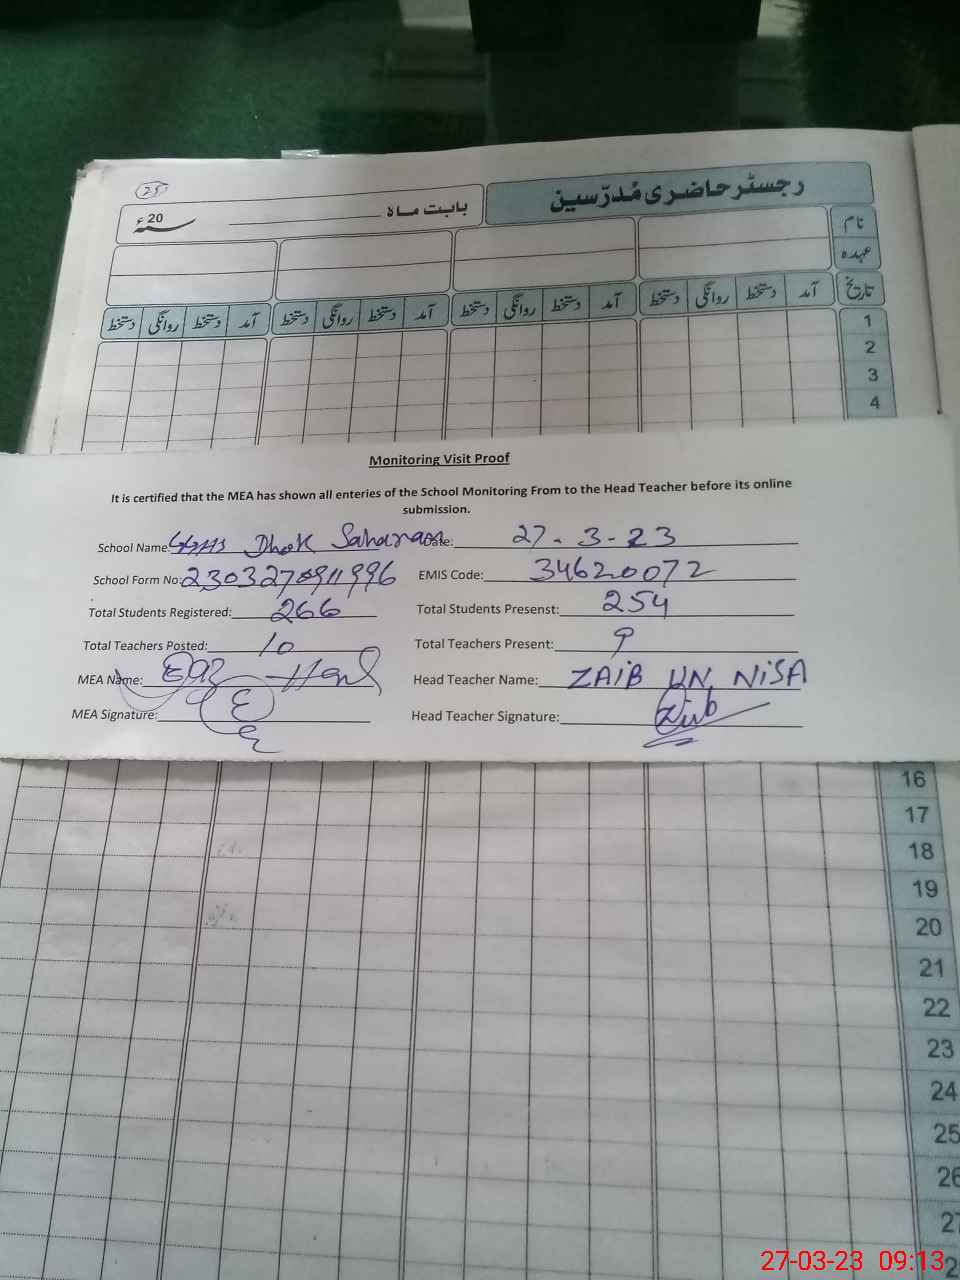 25
رجسٹر حاضری مُدرّسین
بابت ماہ
20ء
نام
عہدہ
تاریخ آمد دستخط روانگی دستخط آمد دستخط روانگی دستخط آمد دستخط روانگی دستخط آمد دستخط روانگی دستخط
1
2
3
4
Monitoring Visit Proof
It is certified that the MEA has shown all enteries of the School Monitoring From to the Head Teacher before its online
submission.
School Name: Dhok Sahanan Date: 27-3-23
School Form No: EMIS Code: 34620072
Total Students Registered: 266 Total Students Presenst: 254
Total Teachers Posted: 10 Total Teachers Present: 9
MEA Name: Head Teacher Name: ZAIB UN NISA
MEA Signature: Head Teacher Signature: Zaib
16
17
18
19
20
21
22
23
24
25
26
27
27-03-23 09:13